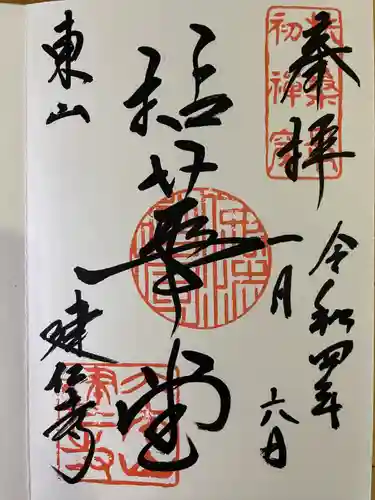 奉拝
令和四年
一月
六日
拈華堂
東山
建仁寺
扶桑
初禅窟